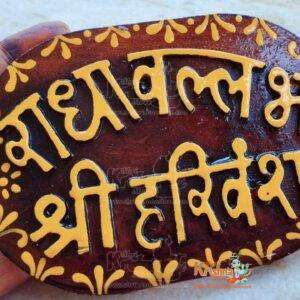 राधावल्लभ
श्री हरिवंश